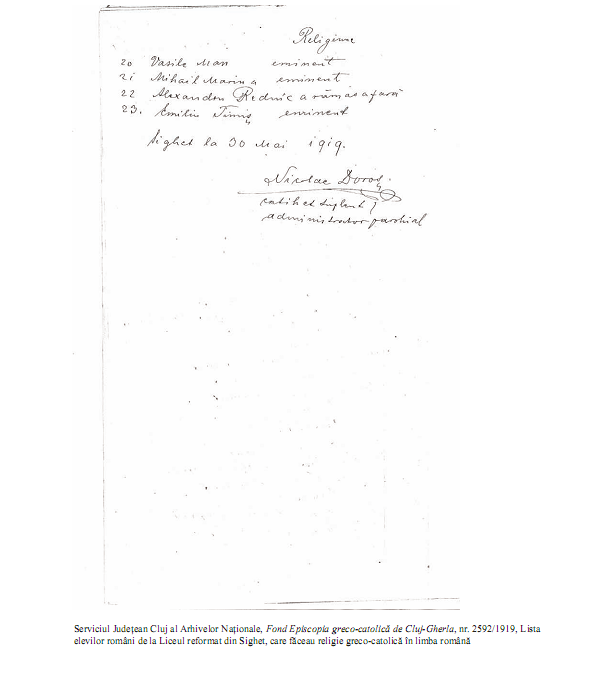 Religiune
20 Vasile Man eminent
21 Mihail Marina eminent
22 Alexandru Rednic a rămas afară
23. Emiliu Timiș eminent
Sighet la 30 Mai 1919.
Nicolae Doroș
catihet suplent /
administrator parohial
Serviciul Județean Cluj al Arhivelor Naționale, Fond Episcopia greco-catolică de Cluj-Gherla, nr. 2592/1919, Lista
elevilor români de la Liceul reformat din Sighet, care făceau religie greco-catolică în limba română